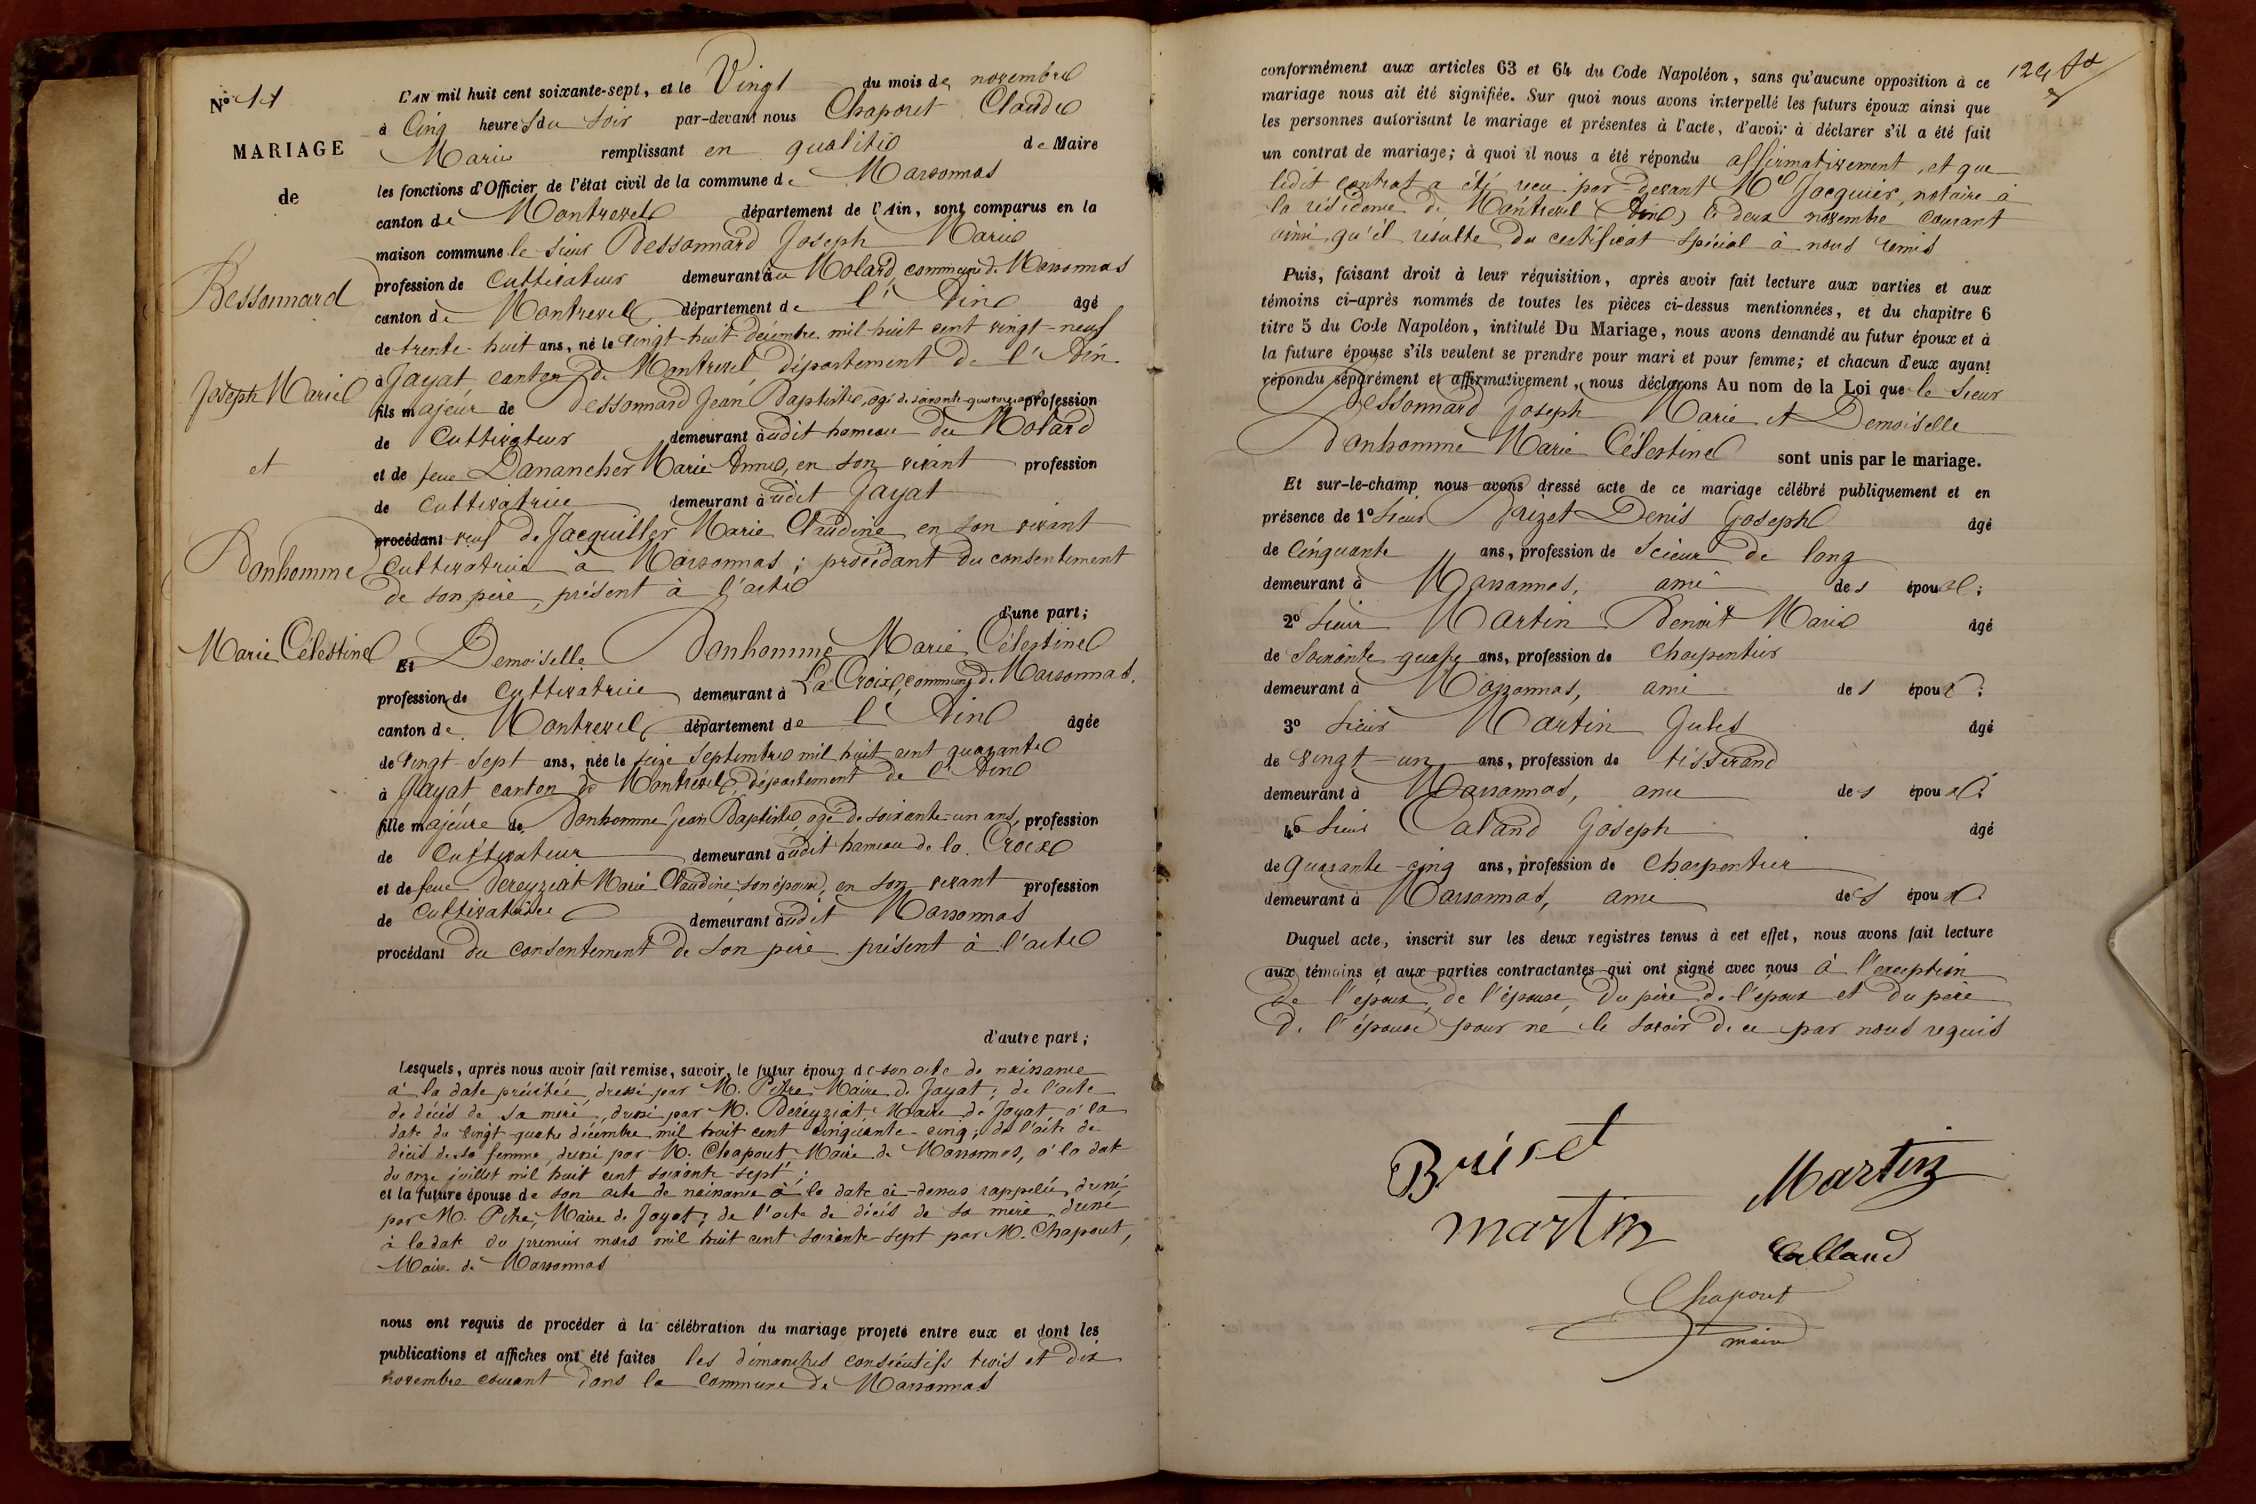 N° 11
MARIAGE
de
Bessonnard
Joseph Marie
et
Bonhomme
Marie Célestine
L'AN mil huit cent soixante-sept, et le Vingt du mois de novembre
à Cinq heures du soir par-devant nous Chapout Claude
Marie remplissant en qualité de Maire
les fonctions d'Officier de l'état civil de la commune de Marsonnas
canton de Montrevel département de l'Ain, sont comparus en la
maison commune le sieur Bessonnard Joseph Marie
profession de Cultivateur demeurant au Molard, commune de Marsonnas
canton de Montrevel département de l'Ain âgé
de trente-huit ans, né le vingt-huit décembre mil huit cent vingt-neuf
à Jayat, canton de Montrevel, département de l'Ain
fils majeur de Bessonnard Jean Baptiste, âgé de soixante-quatorze ans profession
de Cultivateur demeurant audit hameau du Molard
et de feue Danancher Marie Anne, en son vivant profession
de cultivatrice demeurant audit Jayat
procédant veuf de Jacquiller Marie Claudine en son vivant
Cultivatrice à Marsonnas ; procédant du consentement
de son père, présent à l'acte
d'une part ;
Et Demoiselle Bonhomme Marie Célestine
profession de Cultivatrice demeurant à La Croix, commune de Marsonnas,
canton de Montrevel département de l'Ain âgée
de vingt-sept ans, née le seize septembre mil huit cent quarante
à Jayat canton de Montrevel, département de l'Ain
fille majeure de Bonhomme Jean Baptiste, âgé de soixante-un ans, profession
de Cultivateur demeurant audit hameau de la Croix
et de feue Dereyziat Marie Claudine son épouse, en son vivant profession
de Cultivatrice demeurant audit Marsonnas
procédant du consentement de son père présent à l'acte
d'autre part ;
Lesquels, après nous avoir fait remise, savoir, le futur époux de son acte de naissance
à la date précitée, dressé par M. Pitre, Maire de Jayat ; de l'acte
de décès de sa mère, dressé par M. Dereyziat Maire de Jayat à la
date du vingt-quatre décembre mil huit cent cinquante-cinq ; de l'acte de
décès de sa femme, dressé par M. Chapout Maire de Marsonnas, à la date
du onze juillet mil huit cent soixante-sept ;
et la future épouse de son acte de naissance à la date ci-dessus rappelée, dressé
par M. Pitre, Maire de Jayat ; de l'acte de décès de sa mère, dressé
à la date du premier mars mil huit cent soixante-sept par M. Chapout,
Maire de Marsonnas
nous ont requis de procéder à la célébration du mariage projeté entre eux et dont les
publications et affiches ont été faites les dimanches consécutifs trois et dix
novembre courant dans la commune de Marsonnas
conformément aux articles 63 et 64 du Code Napoléon, sans qu'aucune opposition à ce
mariage nous ait été signifiée. Sur quoi nous avons interpellé les futurs époux ainsi que
les personnes autorisant le mariage et présentes à l'acte, d'avoir à déclarer s'il a été fait
un contrat de mariage ; à quoi il nous a été répondu affirmativement, et que
ledit contrat a été reçu par-devant Me Jacquier, notaire à
la résidence de Montrevel (Ain) le deux novembre courant
ainsi qu'il résulte du certificat spécial à nous remis
Puis, faisant droit à leur réquisition, après avoir fait lecture aux parties et aux
témoins ci-après nommés de toutes les pièces ci-dessus mentionnées, et du chapitre 6
titre 5 du Code Napoléon, intitulé Du Mariage, nous avons demandé au futur époux et à
la future épouse s'ils veulent se prendre pour mari et pour femme ; et chacun d'eux ayant
répondu séparément et affirmativement, nous déclarons Au nom de la Loi que le Sieur
Bessonnard Joseph Marie et Demoiselle
Bonhomme Marie Célestine sont unis par le mariage.
Et sur-le-champ nous avons dressé acte de ce mariage célébré publiquement et en
présence de 1° Sieur Brizet Denis Joseph âgé
de Cinquante ans, profession de Scieur de long
demeurant à Marsonnas, ami des époux ;
2° Sieur Martin Benoit Marie âgé
de Soixante-quatre ans, profession de Charpentier
demeurant à Marsonnas, ami des époux ;
3° Sieur Martin Jules âgé
de vingt-un ans, profession de tisserand
demeurant à Marsonnas, ami des époux ;
4° Sieur Caland Joseph âgé
de Quarante-cinq ans, profession de Charpentier
demeurant à Marsonnas, ami des époux.
Duquel acte, inscrit sur les deux registres tenus à cet effet, nous avons fait lecture
aux témoins et aux parties contractantes qui ont signé avec nous à l'exception
de l'époux, de l'épouse, du père de l'époux et du père
de l'épouse pour ne le savoir de ce par nous requis
Briset
Martin
martin
Calland
Chapout
maire